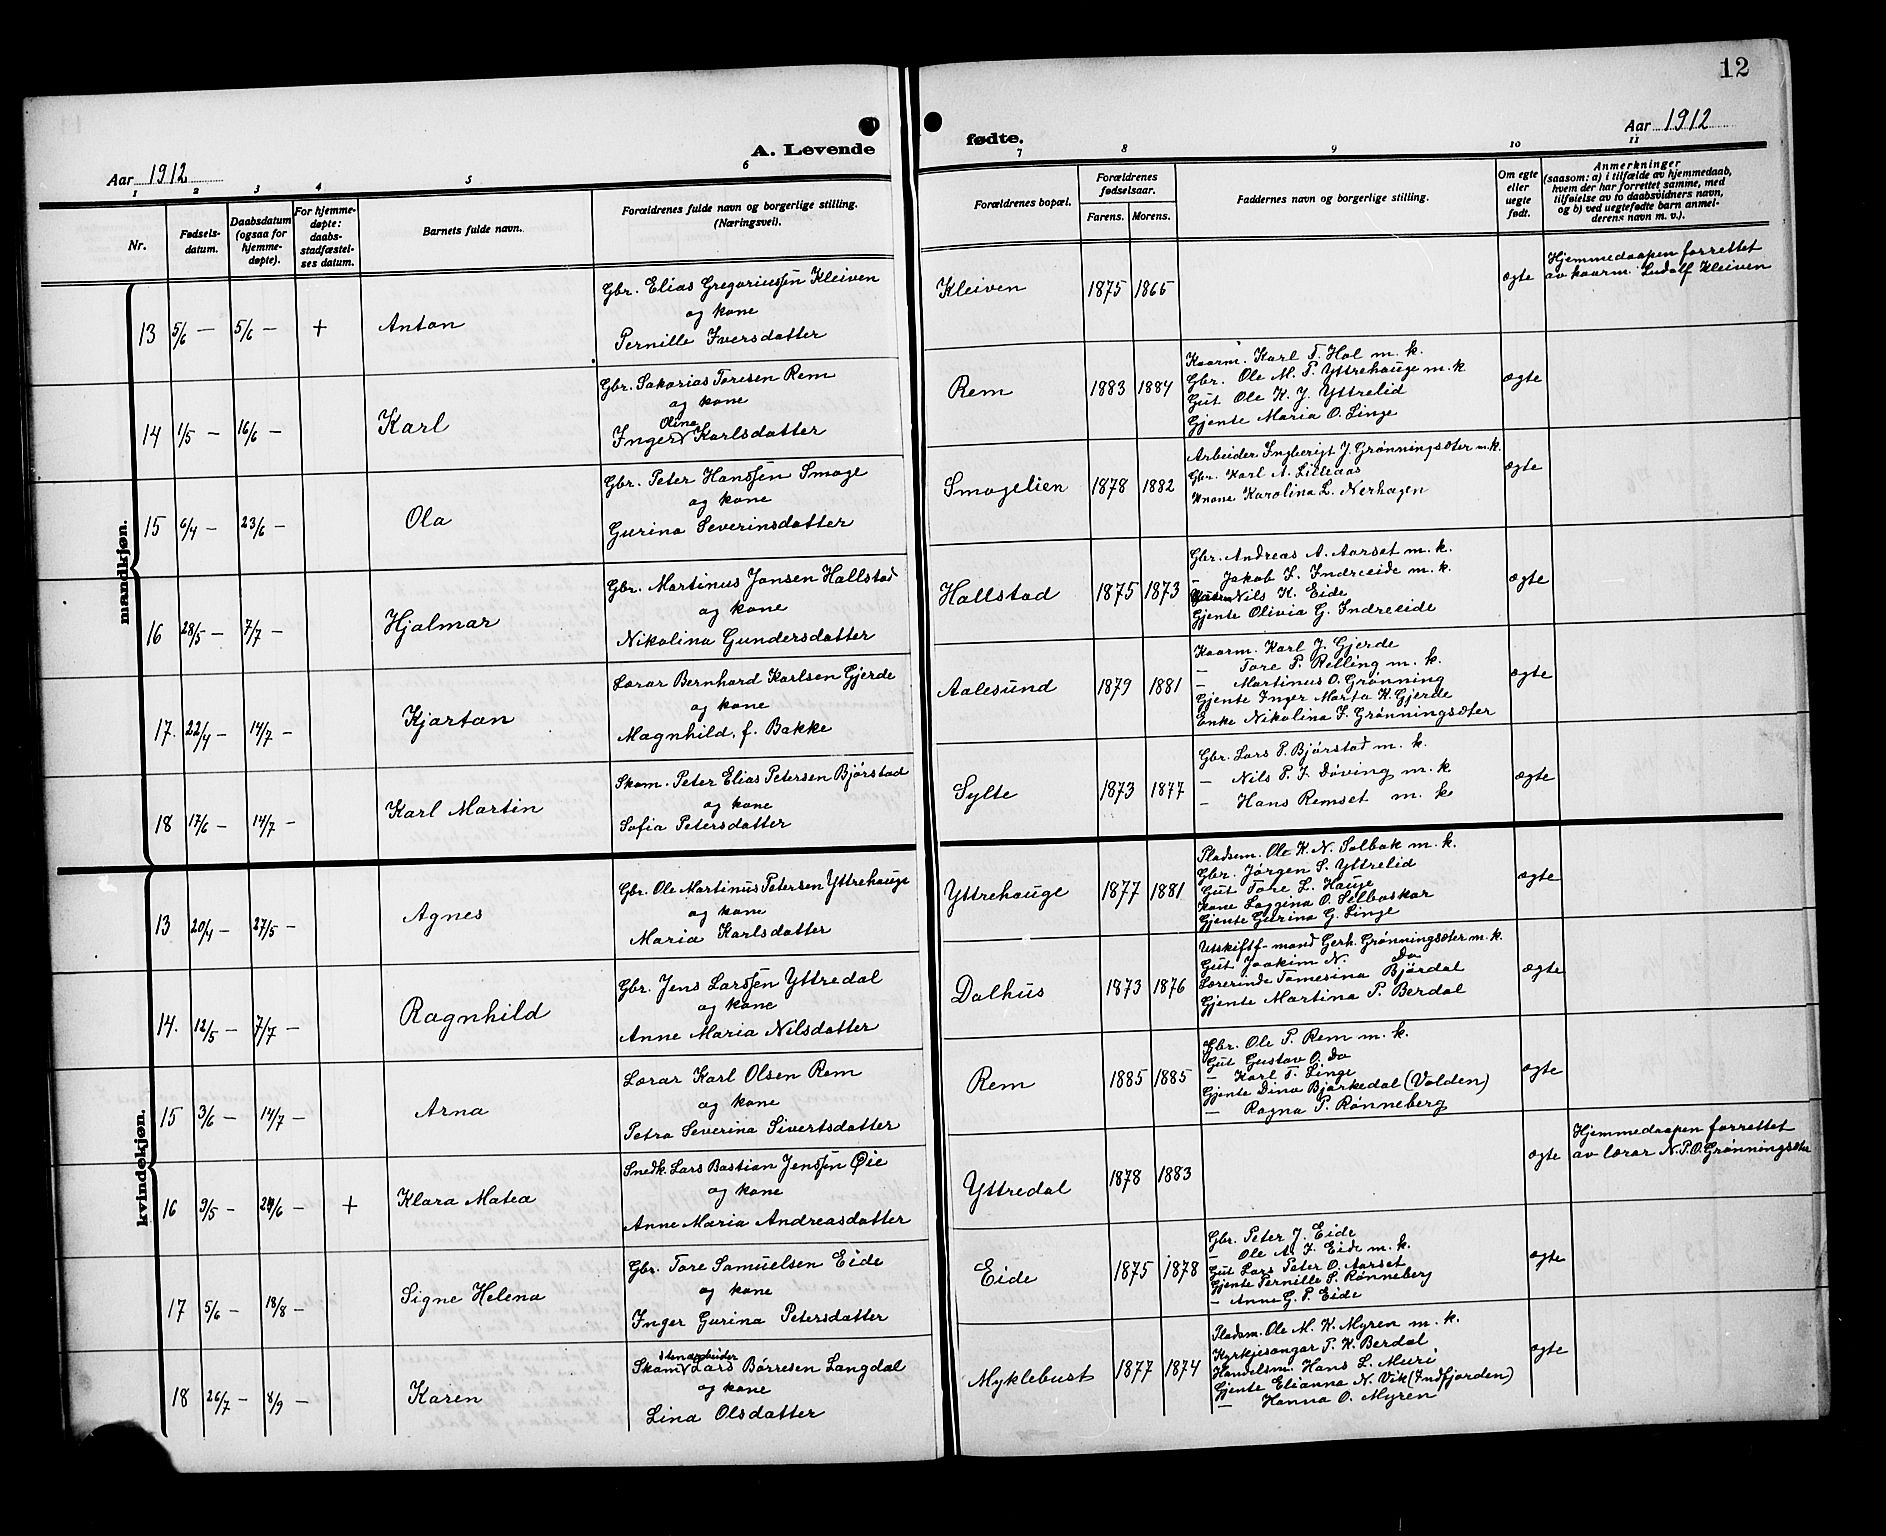 12
A. Levende
fødte.
Aar 1912
Aar 1912
1 2 3 4 5 6
7 8 9 10 11
Nr.
Fødsels-
datum.
Daabsdatum
(ogsaa for
hjemme-
døpte).
For hjemme-
døpte:
daabs-
stadfæstel-
ses datum.
Barnets fulde navn.
Forældrenes fulde navn og borgerlige stilling.
(Næringsvei).
Forældrenes bopæl.
Forældrenes
fødselsaar.
Farens. Morens.
Faddernes navn og borgerlige stilling.
Om egte
eller
uegte
født.
Anmerkninger
(saasom: a) i tilfælde av hjemmedaab,
hvem der har forrettet samme, med
tilføielse av to daabsvidners navn,
og b) ved uegtefødte barn anmel-
derens navn m. v.).
mandkjøn.
13 5/6 — 5/6 — + Anton
Gbr. Elias Gregoriussen Kleiven
og kone
Pernille Iversdatter
Kleiven 1875 1865
ægte
Hjemmedaapen forrettet
av kaarm. Ludolf Kleiven
14 1/5 — 16/6 — Karl
Gbr. Sakarias Toresen Rem
og kone
Olina
Inger Karlsdatter
Rem 1883 1884
Kaarm. Karl T. Hol m. k.
Gbr. Ole M. P. Yttrehauge m. k
Gut Ole K. J. Yttrelid
Gjente Maria O. Linge
ægte
15 6/4 — 23/6 — Ola
Gbr. Peter Hanssen Smoge
og kone
Gurina Severinsdatter
Smogelien 1878 1882
Arbeider Ingberigt J. Grønningsæter m. k.
Gbr. Karl A. Lillaas
Knone Karolina L. Nerhagen
ægte
16 28/5 — 7/7 — Hjalmar
Gbr. Martinus Jonsen Hallstad
og kone
Nikolina Gundersdatter
Hallstad 1875 1873
Gbr. Andreas A. Aarset m. k.
— Jakob I. Indreeide m. k.
Nils K. Eide
Gjente Olivia G. Indreeide
ægte
17. 22/4 — 14/7 — Kjartan
Lærar Bernhard Karlsen Gjerde
og kone
Magnhild, f. Bakke
Aalesund 1879 1881
Kaarm. Karl J. Gjerde
— Tore P. Relling m. k.
— Martinus O. Grønning
Gjente Inger Marta K. Gjerde
Enke Nikolina I. Grønningsæter
ægte
18 17/6 — 14/7 — Karl Martin
Skom. Peter Elias Petersen Bjørstad
og kone
Sofia Petersdatter
Sylte 1873 1877
Gbr. Lars P. Bjørstad m. k.
— Nils P. I. Døving m. k
— Hans Remset m. k
ægte
kvindekjøn.
13 20/4 — 27/5 — Agnes
Gbr. Ole Martinus Petersen Yttrehauge
og kone
Maria Karlsdatter
Yttrehauge 1877 1881
Pladsem. Ole K. N. Solbak m. k.
Gbr. Jørgen S. Yttrelid
Gut Tore L. Hauge
Kone Laggina O. Selboskar
Gjente Gurina G. Linge
ægte
14. 12/5 — 7/7 — Ragnhild
Gbr. Jens Larssen Yttredal
og kone
Anne Maria Nilsdatter
Dalhus 1873 1876
Utskiftf-mand Gerh. Grønningsæter m. k.
Gut Joakim N. Do
Lærerinde Tomesina Bjørdal
Gjente Martina P. Berdal
ægte
15 3/6 — 14/7 — Arna
Lærar Karl Olsen Rem
og kone
Petra Severina Sivertsdatter
Rem 1885 1885
Gbr. Ole P. Rem m. k.
Gut Gustav O. Do
— Karl T. Linge
Gjente Dina Bjørkedal (Volden)
— Ragna P. Rønneberg
ægte
16 9/5 — 24/6 — + Klara Matea
Snedk. Lars Bastian Jenssen Øie
og kone
Anne Maria Andreasdatter
Yttredal 1878 1883
ægte
Hjemmedaapen forrettet
av lærar N. P. O. Grønningsæter
17 5/6 — 18/8 — Signe Helena
Gbr. Tore Samuelsen Eide
og kone
Inger Gurina Petersdatter
Eide 1875 1878
Gbr. Peter J. Eide
— Ole A. I. Eide m. k.
Gut Lars Peter O. Aarset
Gjente Pernille S. Rønneberg
— Anne G. P. Eide
ægte
18 26/7 — 8/9 — Karen
stenarbeider
Skom Lars Børresen Langdal
og kone
Lina Olsdatter
Myklebust 1877 1874
Pladsm. Ole M. K. Myren m. k.
Kyrkjesongar P. K. Berdal
Handelsm. Hans L. Muri
Gjente Elianna N. Vik (Indfjorden)
— Hanna O. Myren
ægte